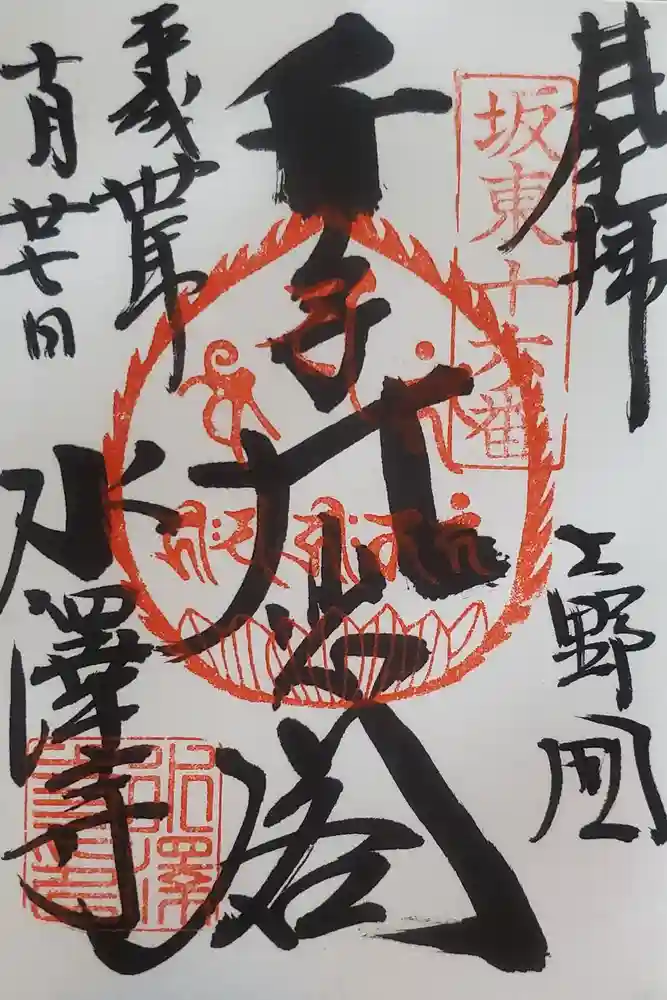 奉拝
坂東十六番
上野国
千手大悲閣
平成丗年
十月廿七日
水澤寺